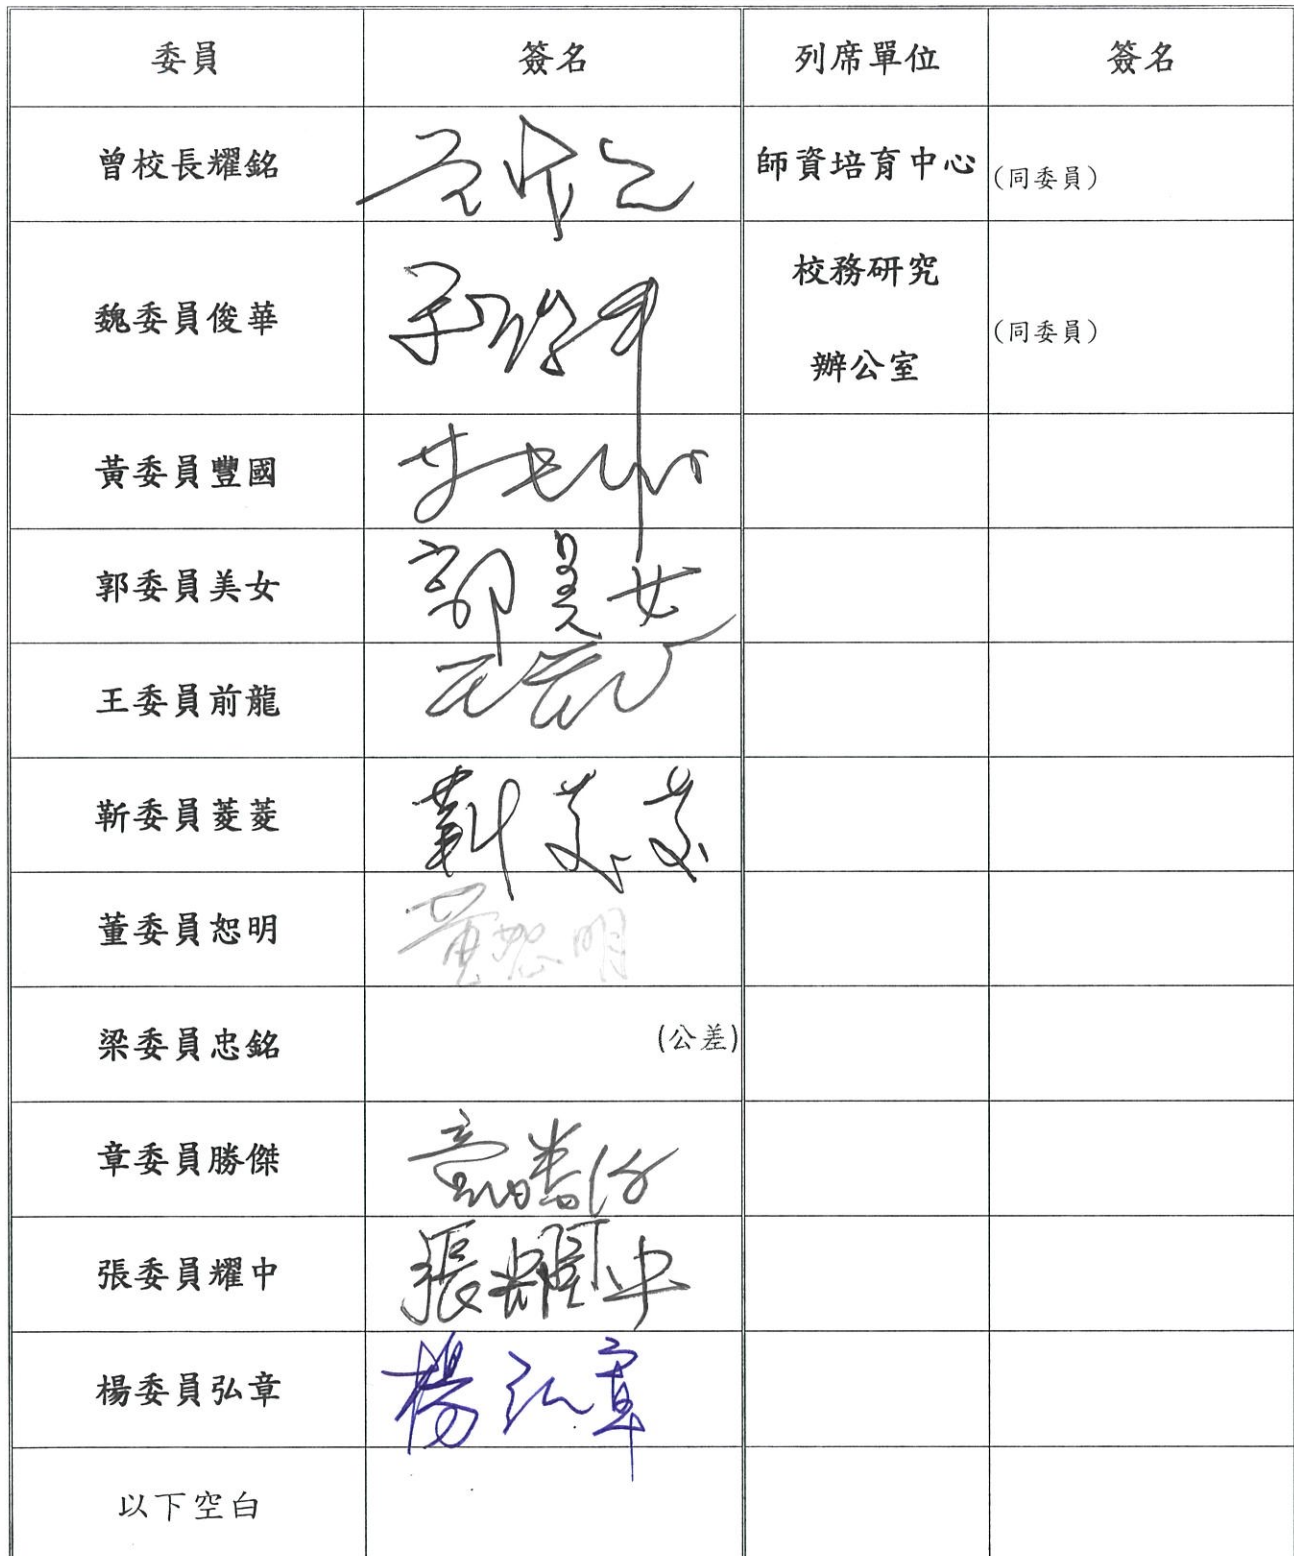 委員 簽名 列席單位 簽名
曾校長耀銘 師資培育中心 (同委員)
魏委員俊華 校務研究 (同委員)
辦公室
黃委員豐國
郭委員美女 郭美女
王委員前龍
靳委員菱菱 靳菱菱
董委員恕明 董恕明
梁委員忠銘 (公差)
章委員勝傑
張委員耀中 張耀中
楊委員弘章 楊弘章
以下空白